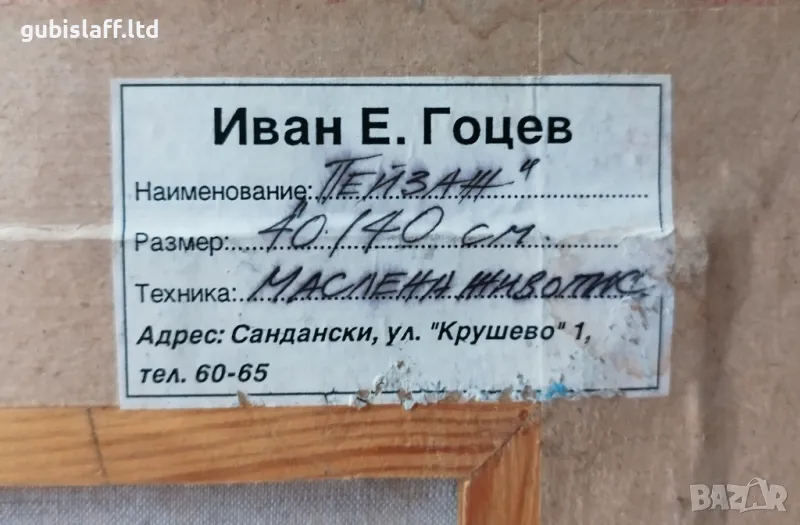 gubislaff.ltd
Иван Е. Гоцев
Наименование: "ПЕЙЗАЖ"
Размер: 40/40 см.
Техника: МАСЛЕНА ЖИВОПИС
Адрес: Сандански, ул. "Крушево" 1,
тел. 60-65
BAZAR